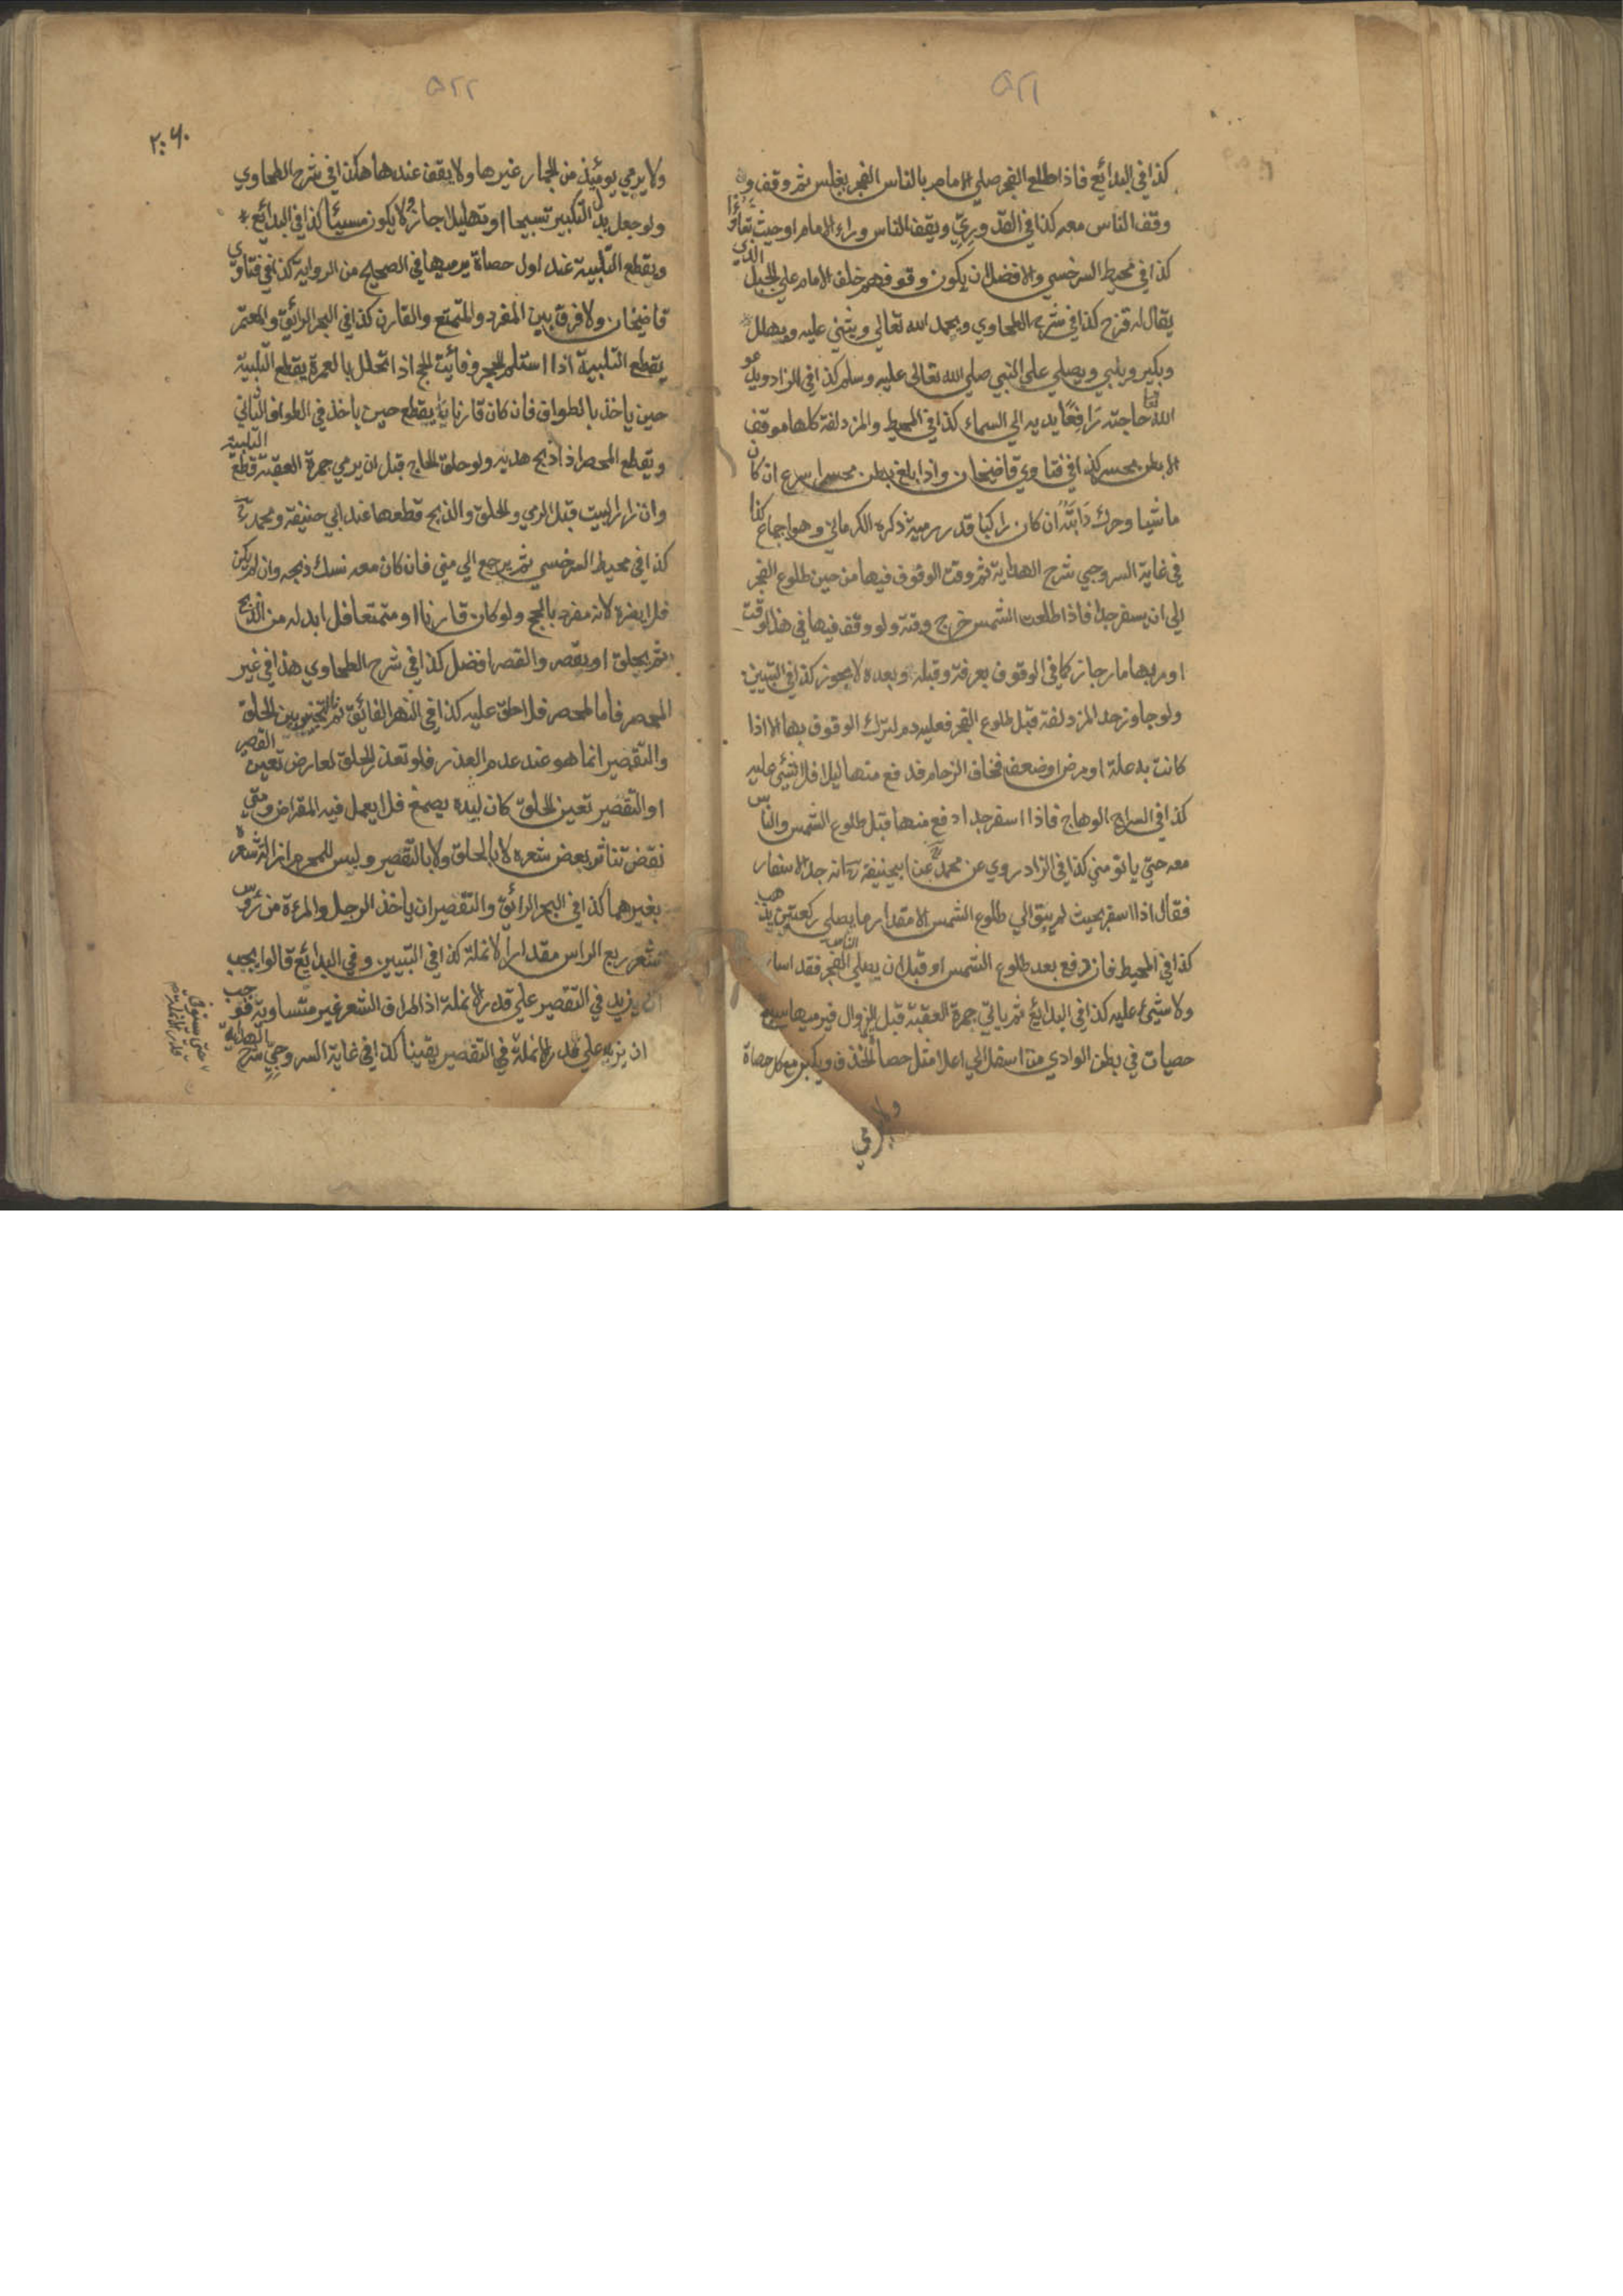 ٥٢١
كذا في البدائع فاذا طلع الفجر صلي الامام بالناس الفجر بغلس ثم وقف و
وقف الناس معه كذا في القدوري ويقف الناس وراء الامام او حيث شاؤا
كذا في محيط السرخسي والافضل ان يكون وقوفهم خلف الامام علي الجبل الذي
يقال له قزح كذا في شرح الطحاوي ويحمد الله تعالي ويثني عليه ويهلل
ويكبر ويلبي ويصلي علي النبي صلي الله تعالي عليه وسلم كذا في الزاد ويدعو
الله تعا حاجته رافعًا يديه الي السماء كذا في المحيط والمزدلفة كلها موقف
الا بطن محسر كذا في فتاوي قاضيخان واذا بلغ بطن محسر اسرع ان كان
ماشيا وحرك دابته ان كان راكبا قدر رمية ذكره الكرماني وهو اجماع كذا
في غاية السروجي شرح الهداية ثم وقت الوقوف فيها من حين طلوع الفجر
الي ان يسفر جدا فاذا طلعت الشمس خرج وقته ولو وقف فيها في هذا الوقت
او مر بها مار جاز كما في الوقوف بعرفة وقبله وبعده لا يجوز كذا في التبيين
ولو جاوز حد المزدلفة قبل طلوع الفجر فعليه دم لترك الوقوف بها الا اذا
كانت به علة او مرض او ضعف فخاف الزحام فدفع منها ليلا فلا شيئ عليه
كذا في السراج الوهاج فاذا اسفر جدا دفع منها قبل طلوع الشمس والناس
معه حتي ياتو مني كذا في الزاد روي عن محمد عن ابيحنيفة انه جد الاسفار
فقال اذا اسفر بحيث لم يبق الي طلوع الشمس الا مقدار ما يصلي ركعتين يذهب
كذا في المحيط فان دفع بعد طلوع الشمس او قبل ان يصلي الناس الفجر فقد اساء
ولا شيئ عليه كذا في البدائع ثم ياتي جمرة العقبة قبل الزوال فيرميها سبع
حصيات في بطن الوادي من اسفل الي اعلا مثل حصا الخذف ويكبر مع كل حصاة
ولا يرمي
٥٢٢
٢٠٦
ولا يرمي يومئذ من الجمار غيرها ولا يقف عندها هكذا في شرح الطحاوي
ولو جعل بدل التكبير تسبيحا او تهليلا جاز ولا يكون مسيئا كذا في البدائع
ويقطع التلبية عند اول حصاة يرميها في الصحيح من الرواية كذا في فتاوي
قاضيخان ولا فرق بين المفرد والمتمتع والقارن كذا في البحر الرائق والمعتمر
يقطع التلبية اذا استلم الحجر وفائت الحج اذا تحلل بالعمرة يقطع التلبية
حين ياخذ بالطواف فان كان قارنا يقطع حين ياخذ في الطواف الثاني
ويقطع المحصر اذا ذبح هديه ولو حلق الحاج قبل ان يرمي جمرة العقبة قطع التلبية
وان زار البيت قبل الرمي والحلق والذبح قطعها عند ابي حنيفة ومحمد
كذا في محيط السرخسي ثم يرجع الي مني فان كان معه نسك ذبحه وان لم يكن
فلا يضره لانه مفرد بالحج ولو كان قارنا او متمتعا فلا بد له من الذبح
ثم يحلق او يقصر والقصر افضل كذا في شرح الطحاوي هذا في غير
المحصر فاما المحصر فلا حلق عليه كذا في النهر الفائق ثم التخيير بين الحلق
والتقصير انما هو عند عدم العذر فلو تعذر الحلق لعارض تعين القصر
او التقصير تعين الحلق كان لبده بصمغ فلا يعمل فيه المقراض ومتي
نقض تناثر بعض شعره لا بالحلق ولا بالتقصير وليس للمحرم ازالة شعره
بغيرهما كذا في البحر الرائق والتقصير ان ياخذ الرجل والمرءة من رؤس
شعر ربع الراس مقدار الانملة كذا في التبيين وفي البدائع قالوا يجب
ان يزيد في التقصير علي قدر الانملة اذ اطراف الشعر غير متساوية فوجب
ان يزيد علي قدر الانملة في التقصير يقينا كذا في غاية السروجي شرح الهداية
حتي يستوفي
قدر الانملة